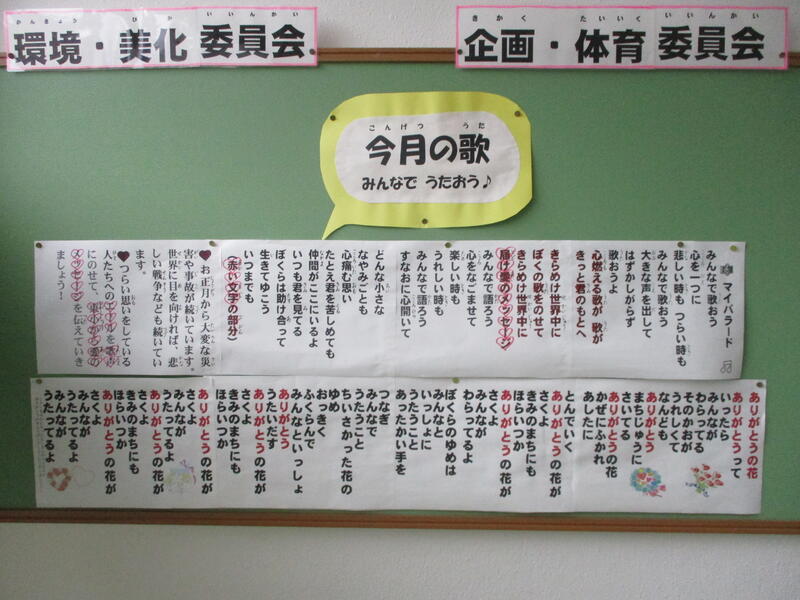 環境・美化 委員会
かんきょう びか いいんかい
企画・体育 委員会
きかく たいいく いいんかい
こんげつ うた
今月の歌
みんなで うたおう♪
マイバラード
みんなで歌おう
心を一つに
悲しい時も つらい時も
みんなで歌おう
大きな声を出して
はずかしがらず
歌おうよ
心燃える歌が 歌が
きっと君のもとへ
きらめけ世界中に
ぼくの歌をのせて
きらめけ世界中に
届け愛のメッセージ
みんなで語ろう
心をなごませて
楽しい時も
うれしい時も
みんなで語ろう
すなおに心開いて
どんな小さな
なやみごとも
心痛む思い
たとえ君を苦しめても
仲間がここにいるよ
いつも君を見てる
ぼくらは助け合って
生きてゆこう
いつまでも
(赤い文字の部分)
お正月から大変な災
害や事故が続いています。
世界に目を向ければ、悲
しい戦争なども続いてい
ます。
つらい思いをしている
人たちへのエールを歌声
にのせて、
メッセージを伝えていき
ましょう!
ありがとうの花
ありがとうって
いったら
みんなが
わらってる
そのかおが
うれしくて
なんども
ありがとう
まちじゅうに
さいてる
ありがとうの花
かぜにふかれ
あしたに
とんでいく
ありがとうの花が
さくよ
きみのまちにも
ほらいつか
ありがとうの花が
さくよ
みんなが
わらってるよ
ぼくらのゆめは
みんなと
いっしょに
うたうこと
あったかい手を
つなぎ
みんなで
うたうこと
ちいさかった花の
ゆめ
おっきく
ふくらんで
みんなといっしょ
ありがとう
うたいだす
ありがとうの花が
さくよ
きみのまちにも
ほらいつか
ありがとうの花が
さくよ
みんなが
うたってるよ
ありがとうの花が
さくよ
きみのまちにも
ほらいつか
ありがとうの花が
さくよ
みんなが
うたってるよ
みんなが
うたってるよ